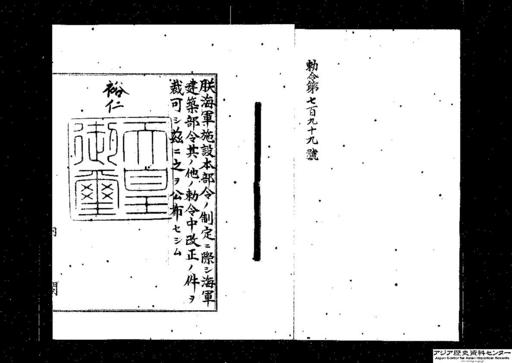 勅令第七百九十九號
朕海軍施設本部令ノ制定ニ際シ海軍
建築部令其ノ他ノ勅令中改正ノ件ヲ
裁可シ茲ニ之ヲ公布セシム
裕仁
天皇
御璽
内
閣
アジア歴史資料センター
Japan Center for Asian Historical Records